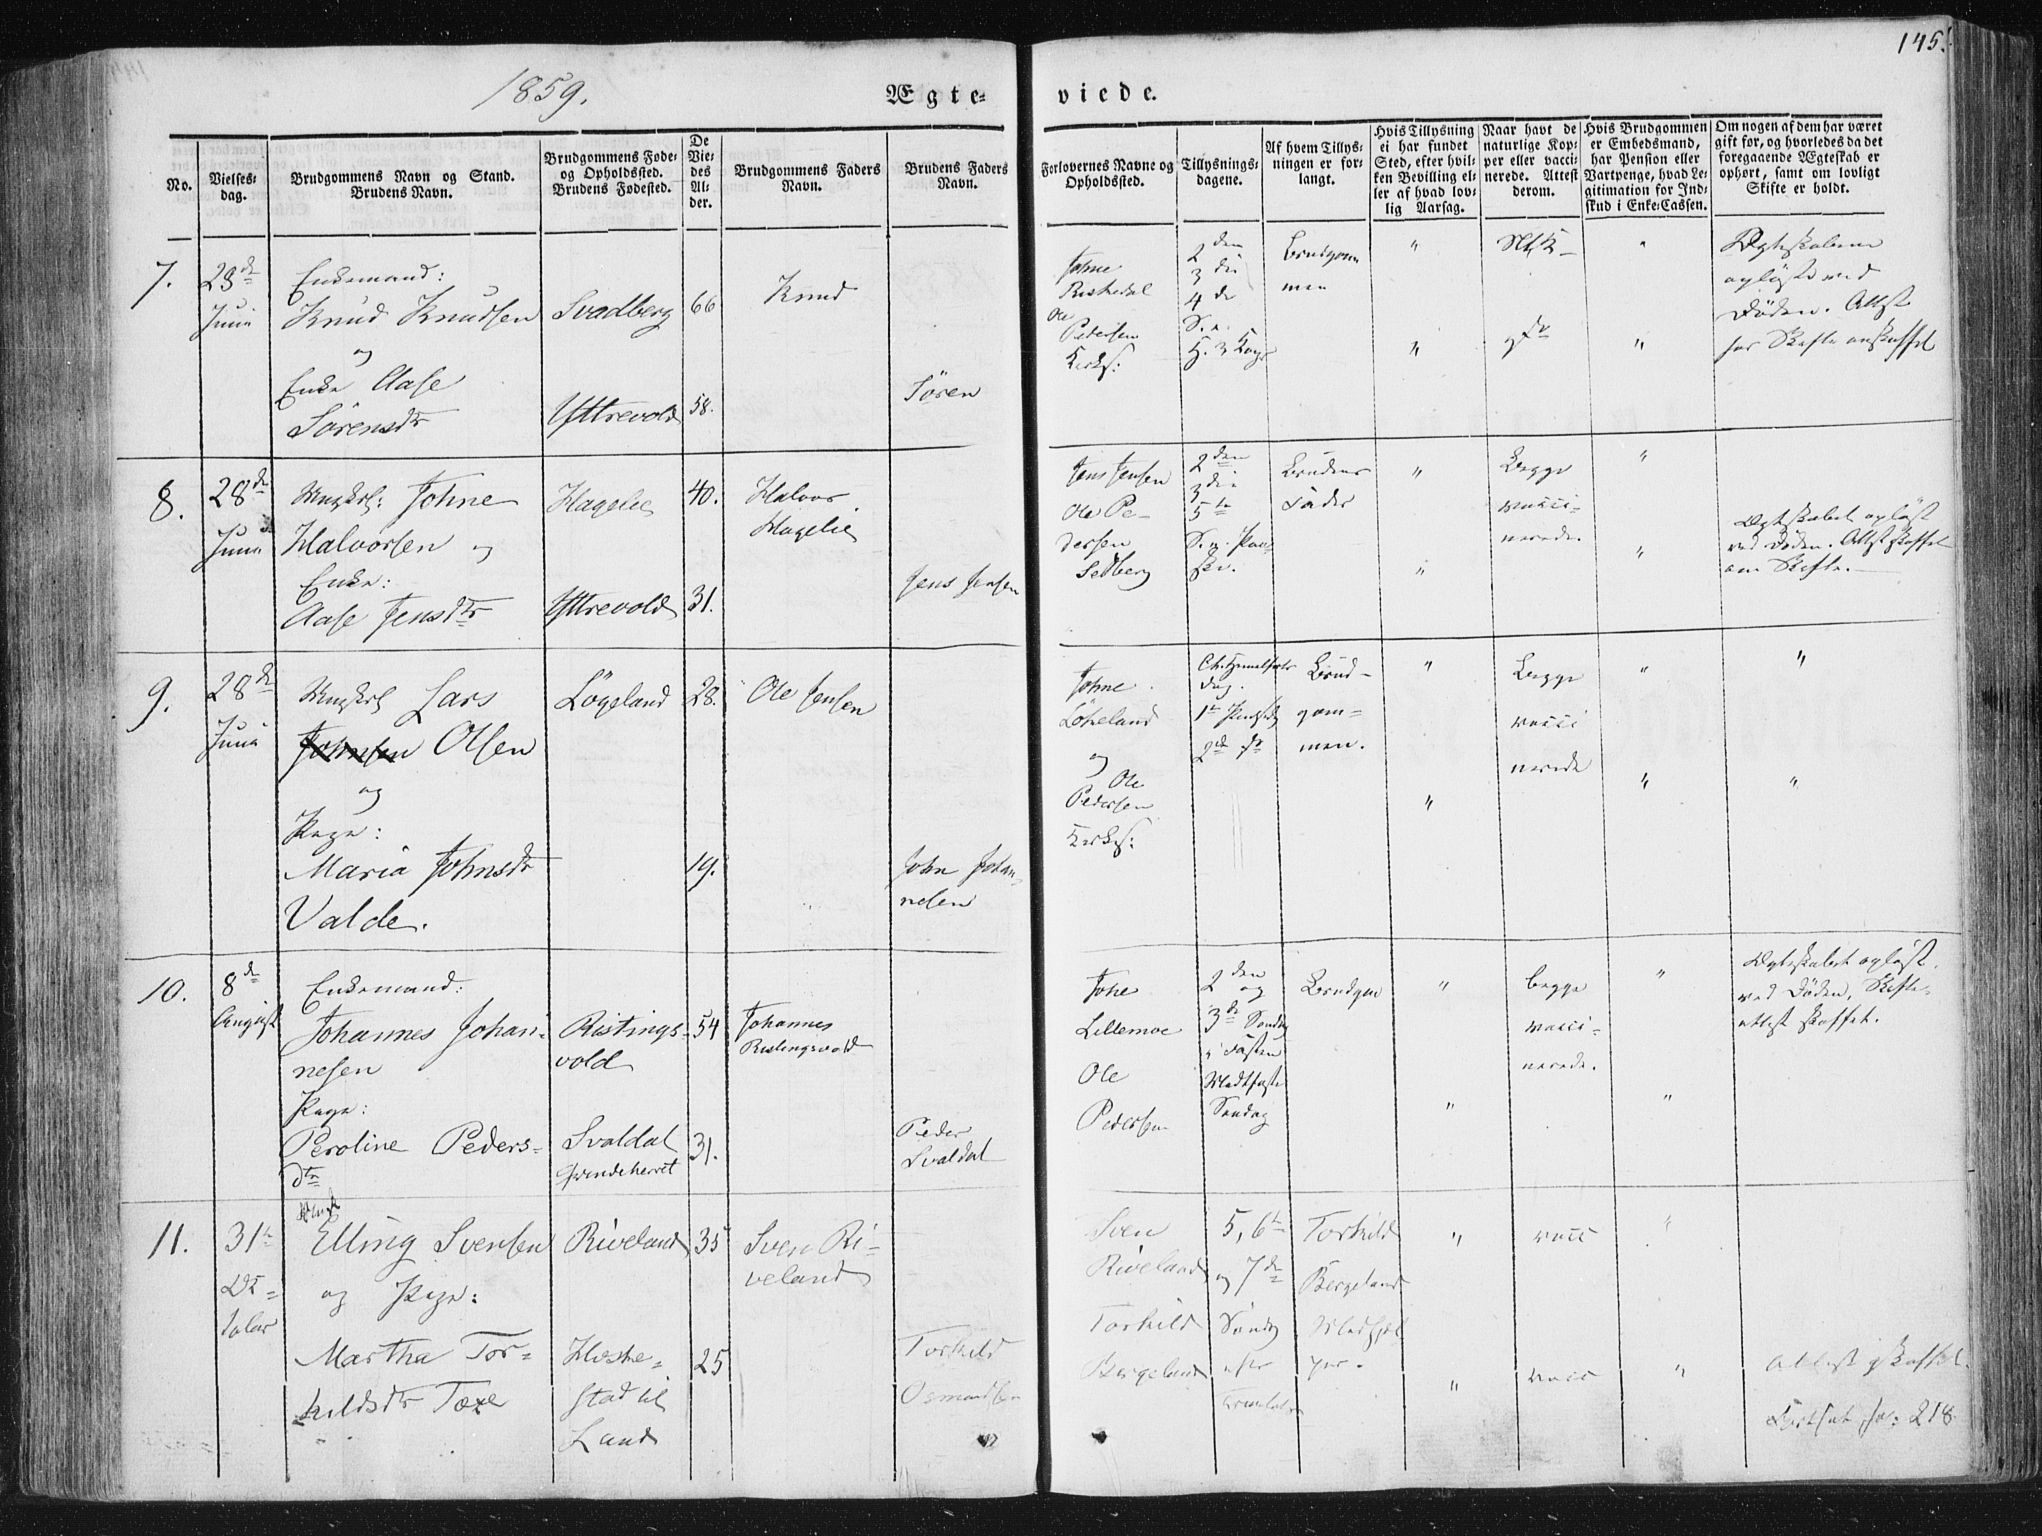 1859.
Ægte-
viede.
145.
No.
Vielses-
dag.
Brudgommens Navn og Stand.
Brudens Navn.
Brudgommens Føde-
og Opholdssted.
Brudens Fødested.
De
Vie-
des
Al-
der.
Brudgommens Faders
Navn.
Brudens Faders
Navn.
Forlovernes Navne og
Opholdssted.
Tillysnings-
dagene.
Af hvem Tillys-
ningen er for-
langt.
Hvis Tillysning
ei har fundet
Sted, efter hvil-
ken Bevilling el-
ler af hvad lov-
lig Aarsag.
Naar havt de
naturlige Kop-
per eller vacci-
nerede. Attest
derom.
Hvis Brudgommen
er Embedsmand,
har Pension eller
Vartpenge, hvad Le-
gitimation for Ind-
skud i Enke-Cassen.
Om nogen af dem har været
gift før, og hvorledes da det
foregaaende Ægteskab er
ophørt, samt om lovligt
Skifte er holdt.
7.
Juni
Enkemand:
Knud Knudsen
og
Enke Aase
Sørensdtr
Svadberg
Yttrevold
66
58.
Knud
Søren
Johne
Ole
Pedersen
Kirks:
2den
3die
4de
Brudgom
men
"
"
"
"
Ægteskaberne
opløste ved
Døden. Attst
for Skifte anskaffet
8.
28de
Juni
Ungkrl: Johne
Halvorsen og
Enke:
Aase Jensdtr
Hagelie
Yttrevold
40.
31.
Halvor
Hagelie
Jens Jensen
Jens Jensen
Ole Pe-
dersen
Sedberg
2den
3die
5te
Brudens
Fader
"
"
Begge
vacci-
nerede.
"
"
Ægteskabet opløst
ved Døden. Attst skaffet
om Skifte.
9.
28de
Juni
Ungkrl Lars
Johnsen Olsen
og
Pige:
Maria Johnsdtr
Valde.
Løgeland
28.
19.
Ole Jensen
John Johan-
nesen
Johne
Løheland
og
Ole
Pedersen
Kirkes:
Chr. Himmelfarts
dag.
Brud-
gom-
men.
"
"
Begge
vacci
nerede
"
"
"
"
10.
8de
August
Enkemand:
Johannes Johan-
nesen
Pige:
Peroline Peders-
dtr
Ristings-
vold
Svaldal
54
31.
Johannes
Ristingsvold
Peder
Svaldal
Johe
Lillemoe
Ole
Pedersen
2den
og
3de Søndag
i Fasten
Midtfaste
Søndag
Brudgom
"
"
begge
vacci-
nerede.
"
"
Ægteskabet opløst.
ved Døden, Skifte-
attest skaffet.
11.
31te
October
Elling Svensen
og Pige:
Martha Tor-
kildsdtr Toxe
Riveland
stad til
Land
35
25
Sven Ri-
veland
Torkild
Osmundsen
Sven
Riveland
Torkild
Bergeland
5, 6te
og 7de
Søndag
efter
Torkild
Bergeland
"
"
vacc
vacc
"
"
Attest skaffet.
Fortsat fol: 218